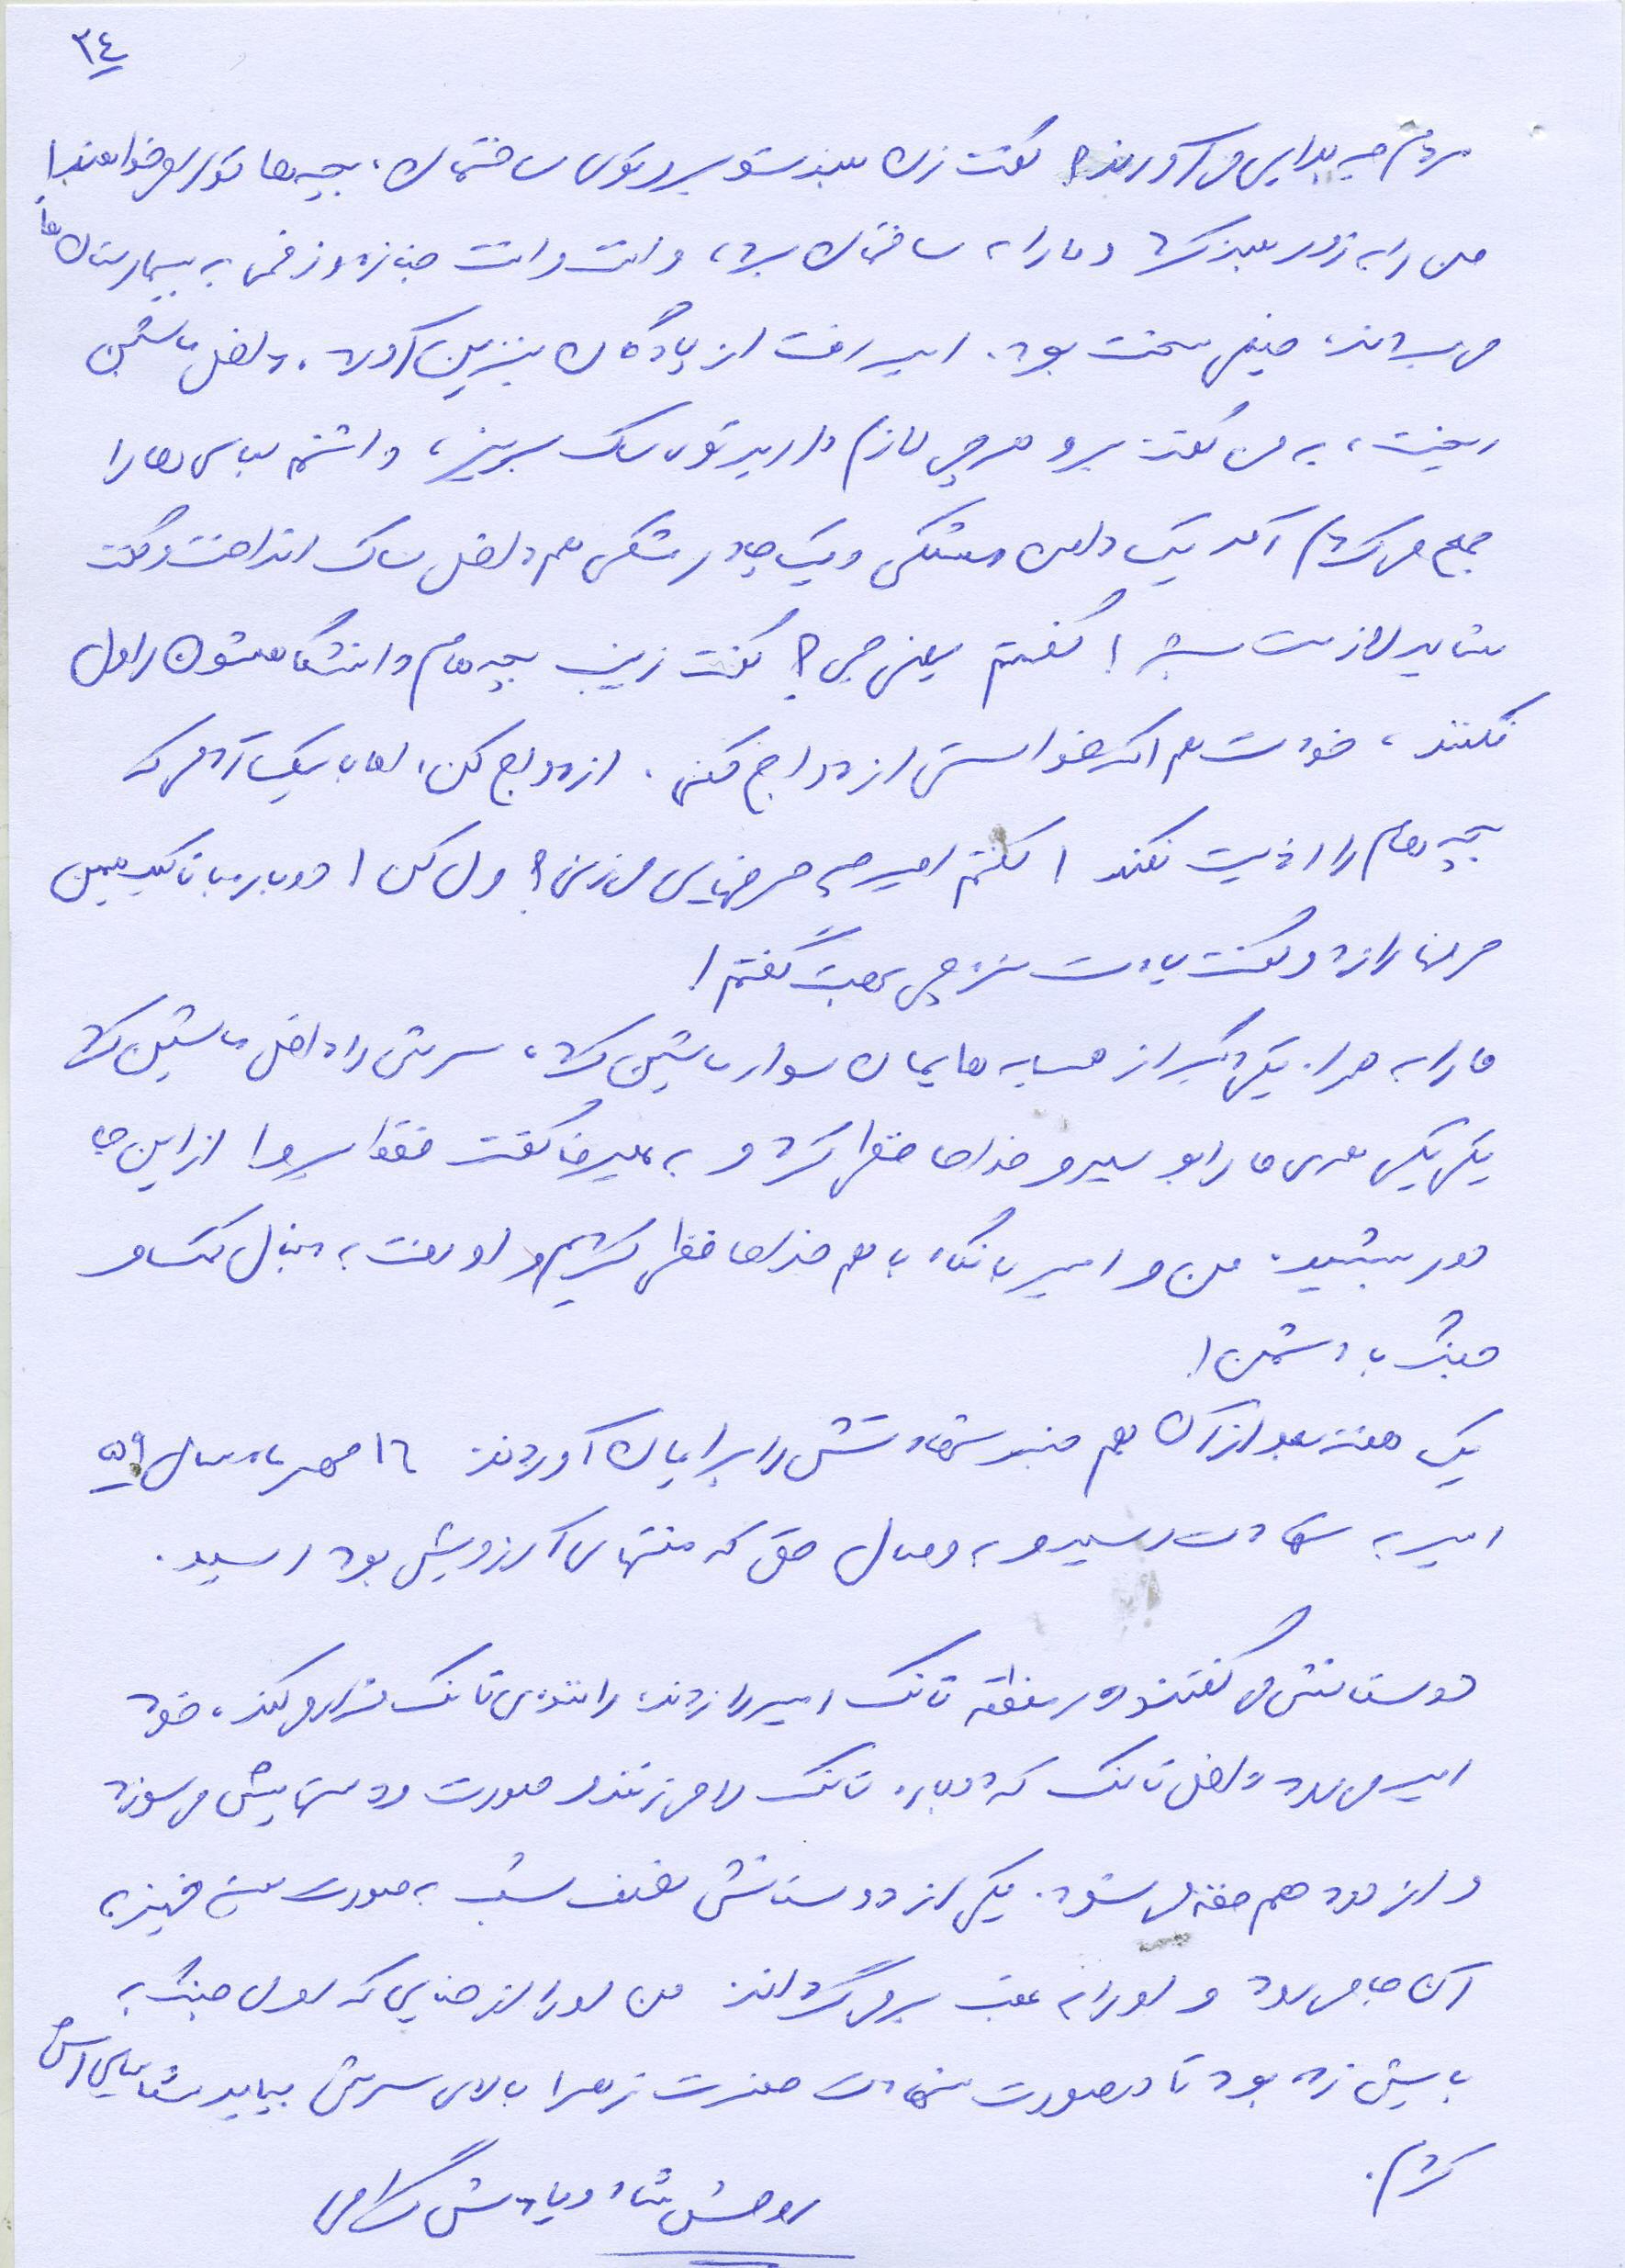 ۲٤
مردم چه بلایی می‌آورند؟ گفت زن بلند شو برو توی ساختمان، بچه‌ها تو را می‌خواهند!
من را به زور بلند کرد و ما را به ساختمان برد، وانت وانت جنازه و زخمی به بیمارستان‌ها
می‌بردند، خیلی سخت بود. امیر رفت از پادگان بنزین آورد، داخل ماشین
ریخت، به من گفت برو هر چی لازم دارید توی ساک بریز، داشتم لباس‌ها را
جمع می‌کردم آمد یک دامن مشکی و یک چادر مشکی هم داخل ساک انداخت و گفت
شاید لازمت بشه! گفتم یعنی چی؟ گفت زینب بچه‌هام دانشگاهشون را ول
نکنند، خودت هم اگر خواستی ازدواج کنی، ازدواج کن، اما با یک آدمی که
بچه‌هام را اذیت نکند! گفتم امیر چه حرفهایی می‌زنی؟ ول کن! دوباره با تاکید همین
حرفها را زد و گفت یادت نره چی بهت گفتم!
ما را به همراه یکی دیگر از همسایه‌هایمان سوار ماشین کرد، سرش را داخل ماشین کرد
یکی یکی همه‌ی ما را بوسید و خداحافظی کرد و به علیرضا گفت فقط برو! از این جا
دور بشید. من و امیر با نگاه با هم خداحافظی کردیم و او رفت به دنبال کمک و
جنگ با دشمن!
یک هفته بعد از آن هم خبر شهادتش را برایمان آوردند ۱٦ مهر ماه سال ۵۹
امیر به شهادت رسید و به وصال حق که منتهای آرزویش بود رسید.
دوستانش می‌گفتند در منطقه تانک امیر را زدند، راننده‌ی تانک فرار می‌کند، خود
امیر می‌رود داخل تانک که دوباره تانک را می‌زنند و صورت و دستهایش می‌سوزد
و از دود هم خفه می‌شود. یکی از دوستانش نصف شب به صورت سینه خیز به
آن جا می‌رود و او را به عقب برمی‌گرداند من او را از حنایی که اول جنگ به
پایش زده بود تا در صورت شهادت حضرت زهرا بالای سرش بیاید شناسایی‌اش
کردم.
روحش شاد و یادش گرامی